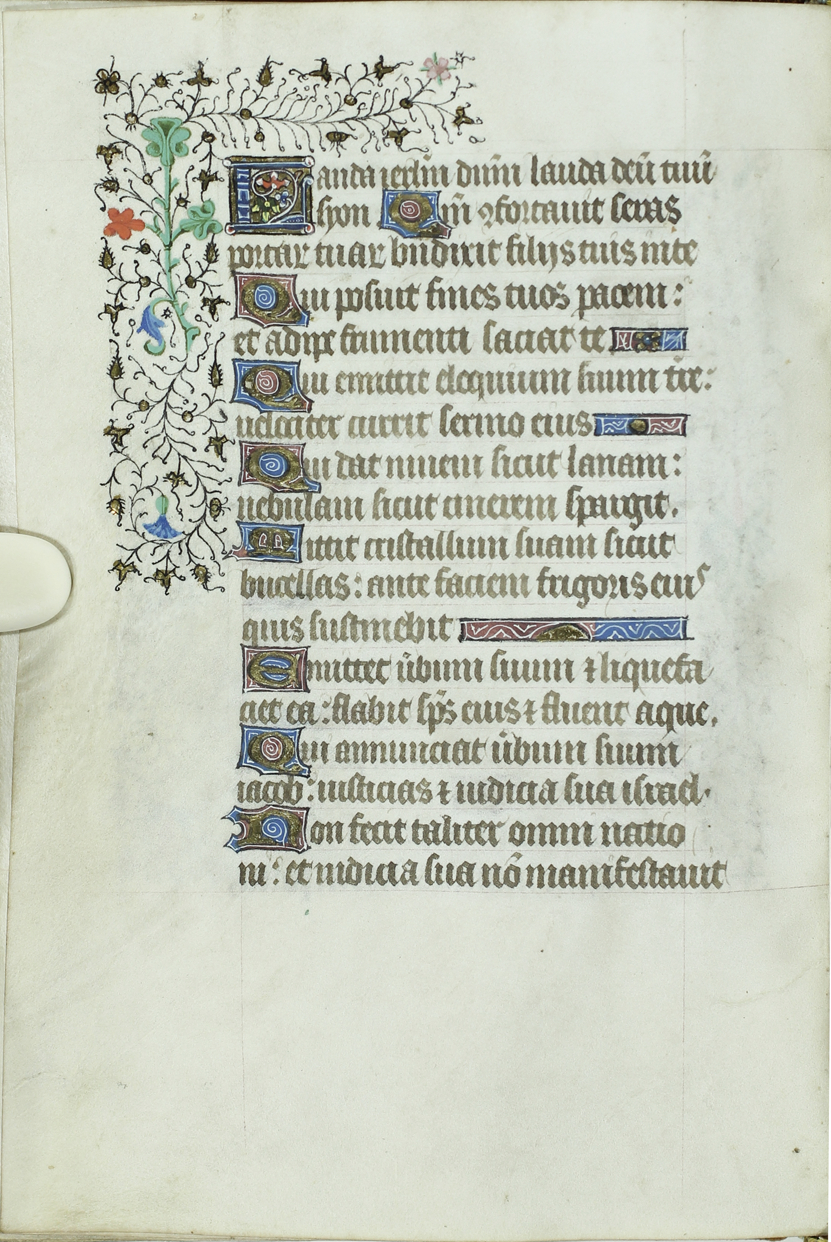 Lauda ierlm̄ dnm̄ lauda deū tuū
syon Qm̄ ꝯfortauit seras
portaꝝ tuaꝝ bn̄dixit filijs tuis in te
Qui posuit fines tuos pacem :
et adipe frumenti saciat te
Qui emittit eloquium suum tr̄e :
uelociter currit sermo eius
Qui dat niuem sicut lanam :
nebulam sicut cinerem spargit.
Mittit cristallum suam sicut
bucellas : ante faciem frigoris eius
quis sustinebit
Emittet ūbum suum ⁊ liquefa
ciet ea : flabit sp̄s eius ⁊ fluent aque.
Qui annunciat ūbum suum
iacob : iusticias ⁊ iudicia sua israel.
Non fecit taliter omni natio
ni : et iudicia sua nō manifestauit